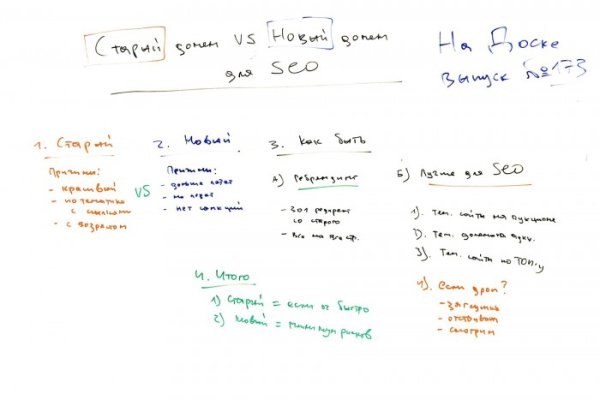 Старый домен VS Новый домен
для SEO
На Доске
выпуск №173
1. Старый
Причины:
- красивый
- по тематике
с ссылками
- с возрастом
VS
2. Новый
Причины:
- дольше
- не
- нет санкций
3. Как быть
А) Ребрендинг
- 301 редирект
со старого
- Все на все стр.
Б) Лучше для SEO
1). Тем. сайты на аукционе
2). Тем. домены аукц.
3). Тем. сайты по ТОП-у
4). Если дроп?
- заглушка
- отстойник
- смотрим
4. Итого
1) Старый = если ог быстро
2) Новый = минимум рисков